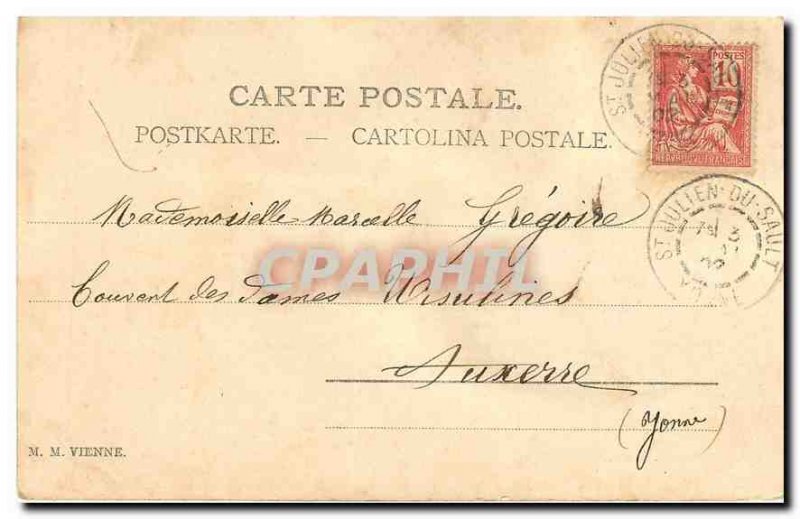 ST JULIEN
POSTES
10
REPUBLIQUE FRANÇAISE
CARTE POSTALE.
POSTKARTE. — CARTOLINA POSTALE.
ST JULIEN-DU-SAULT
3
02
Mademoiselle Marcelle Grégoire
CPAPHIL
Couvent des Dames Ursulines
Auxerre
(Yonne)
M. M. VIENNE.